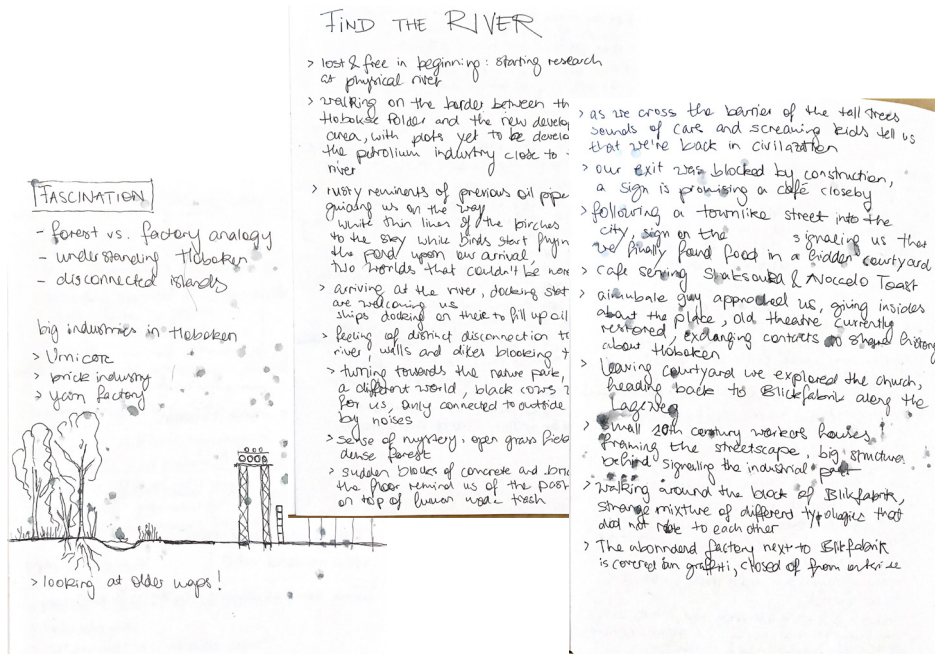 FASCINATION
- forest vs. factory analogy
- understanding Hoboken
- disconnected islands
big industries in Hoboken
> Umicore
> brick industry
> yarn factory
> looking at older maps!
FIND THE RIVER
> lost & free in beginning: starting research
at physical river
> walking on the border between th
Hobokse Polder and the new develo
area, with plots yet to be develo
the petrolium industry close to
river
> rusty reminents of previous oil pipe
guiding us on the way
white thin lines of the birches
to the sky while birds start flying
the pond upon our arrival,
two worlds that couldn't be more
> arriving at the river, docking stat
are welcoming us
ships docking on there to fill up oil
> feeling of distinct disconnection to
river, walls and dikes blocking t
> turning towards the nature park,
a different world, black cows
for us, only connected to outside
by noises
> sense of mystery, open grass field
dense forest
> sudden blocks of concrete and bric
the floor remind us of the past
on top of human made trash
> as we cross the barrier of the tall trees
sounds of cars and screaming kids tell us
that we're back in civilazation
> our exit was blocked by construction,
a sign is promising a café closeby
> following a townlike street into the
city, sign on the signaling us that
we finally found food in a hidden courtyard
> cafe serving Shaksouka & Avocelo Toast
> guy approched us, giving insides
about the place, old theatre currently
restored, exchanging contacts shared history
about Hoboken
> leaving courtyard we explored the church,
heading back to Blickfabrik along the
Lageweg
> small 20th century workers houses
framing the streetscape, big structures
behind signaling the industrial past
> walking around the block of Blikfabrik,
strange mixture of different typologies that
did not relate to each other
> The abonndend factory next to Blikfabrik
is covered in graffiti, closed of from outside